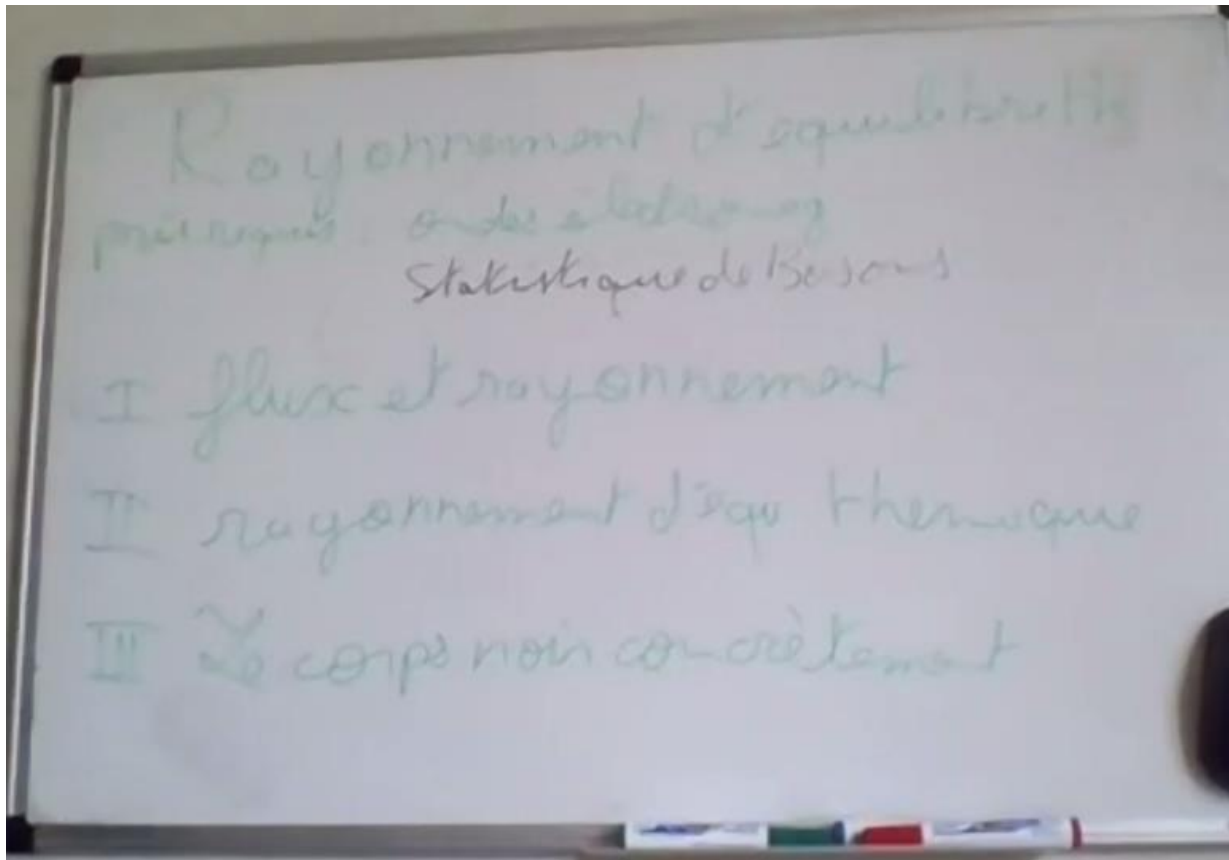 Rayonnement d'equilibre th
prérequis : ondes électromag
Statistique de Bosons
I flux et rayonnement
II rayonnement d'équ thermique
III Le corps noir concrètement